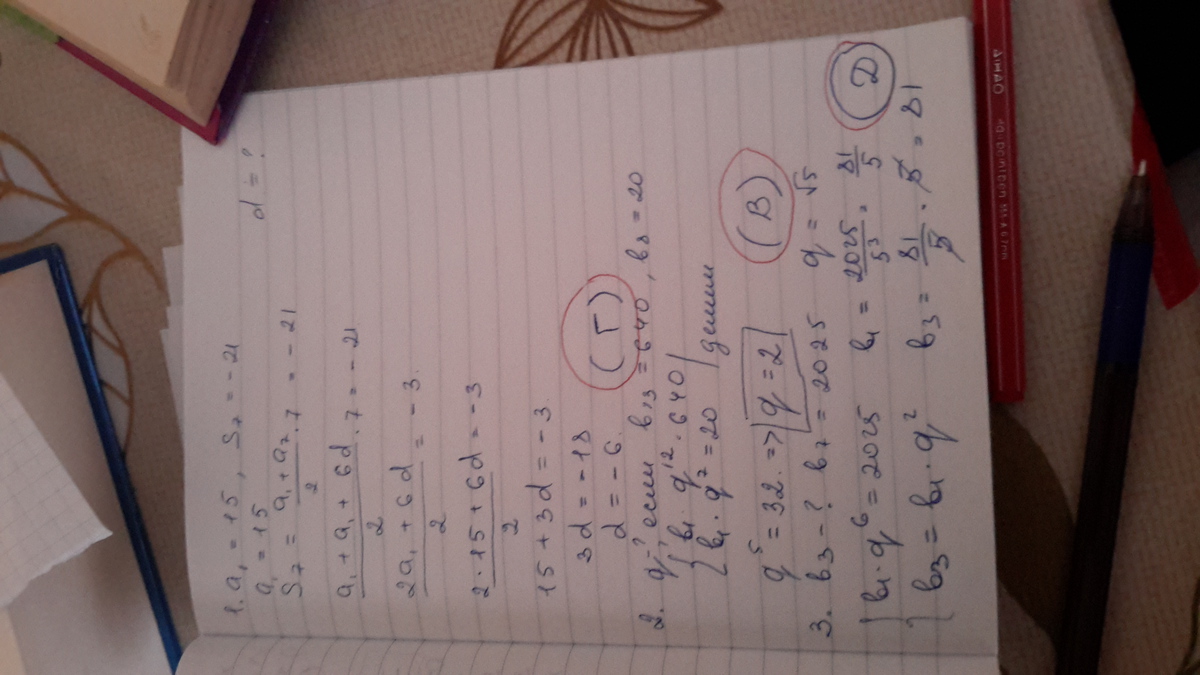 1. a₁ = 15, S₇ = -21 d = ?
a₁ = 15
S₇ = (a₁ + a₇)/2 · 7 = -21
(a₁ + a₁ + 6d)/2 · 7 = -21
(2a₁ + 6d)/2 = -3.
(2·15 + 6d)/2 = -3
15 + 3d = -3.
3d = -18
d = -6. (Г)
2. q-? если b₁₃ = 640, b₈ = 20
{ b₁·q¹²·640 |
b₁·q⁷ = 20 | делим
q⁵ = 32. => q = 2 (В)
3. b₃ - ? b₇ = 2025 q = √5
{ b₁·q⁶ = 2025 b₁ = 2025/5³ = 81/5 Д
b₃ = b₁·q² b₃ = 81/5 · 5 = 81